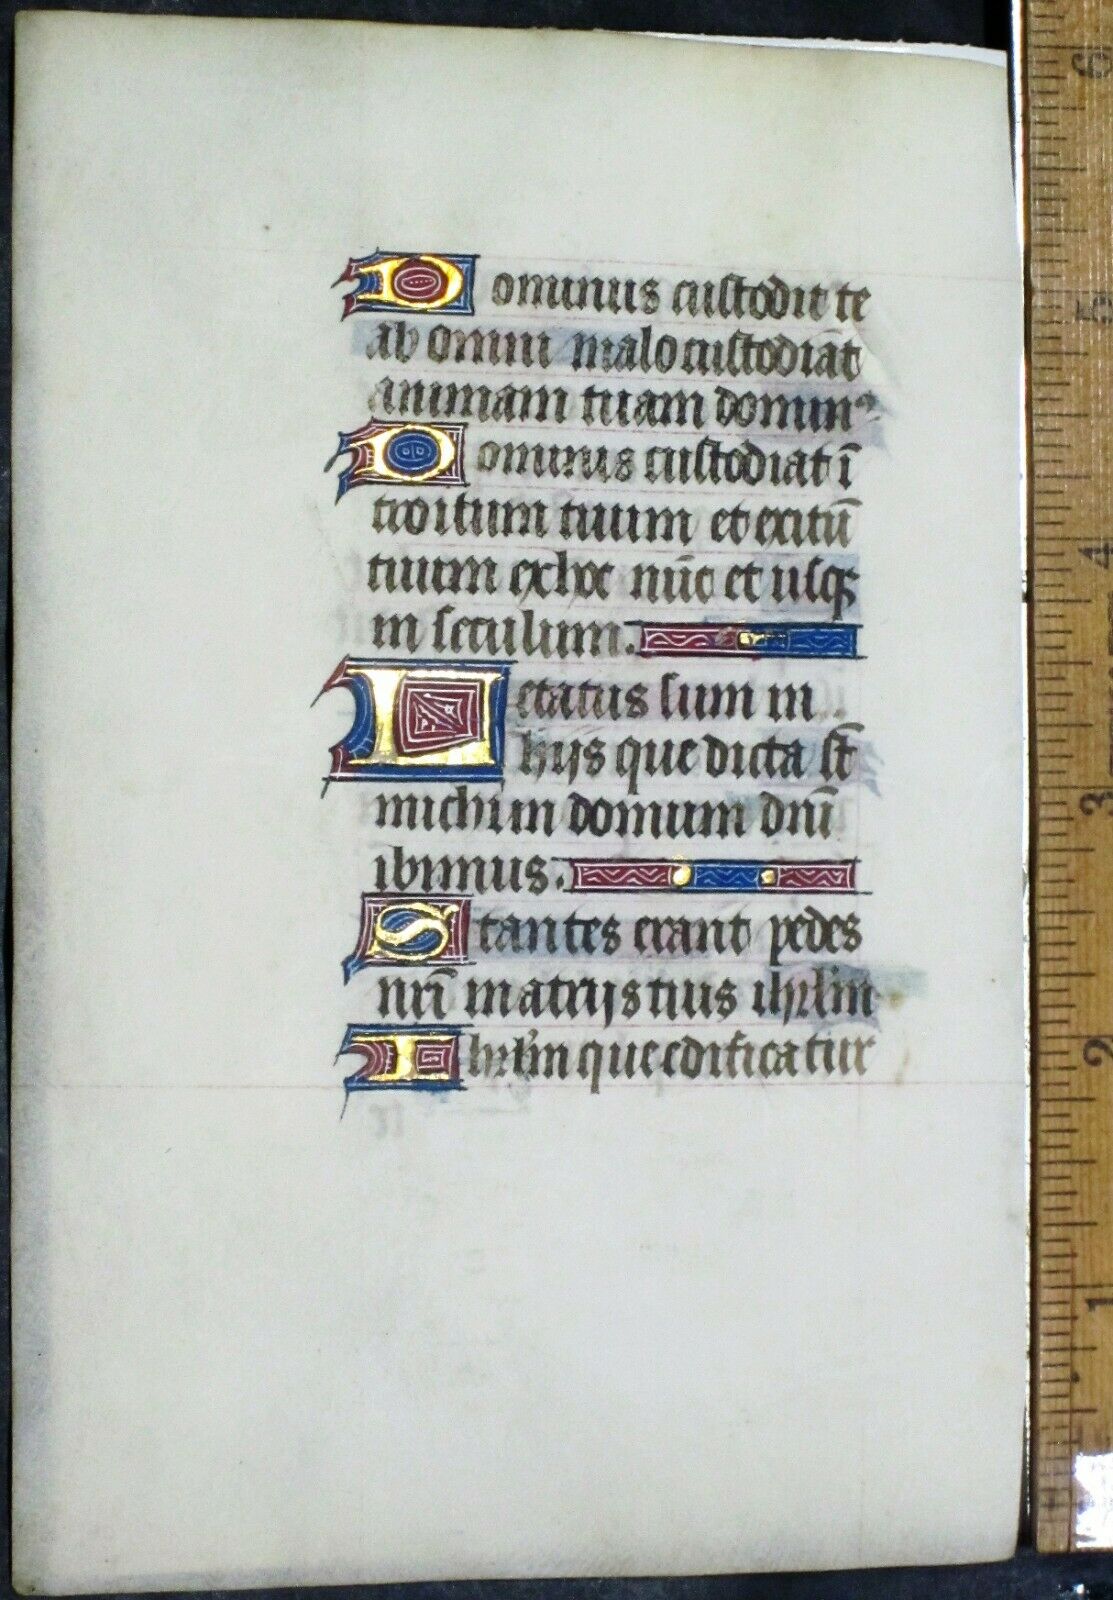 Dominus custodit te
ab omni malo custodiat
animam tuam dominꝰ
Dominus custodiat ī
troitum tuum et exitū
tuum exhoc nūc et usqꝫ
in seculum.
Letatus sum in
hijs que dicta st̄
michi in domum dn̄i
ibimus.
Stantes erant pedes
nr̄i in atrijs tuis ihrl̄m
Ihrl̄m que edificatur
6
5
4
3
2
1